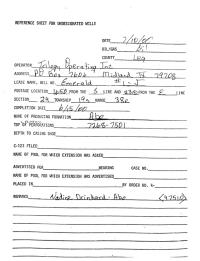 REFERENCE SHEET FOR UNDESIGNATED WELLS
DATE 7/10/00
OIL/GAS Oil
COUNTY Lea
OPERATOR Operating Inc
ADDRESS PO Box 7608 Midland TX 79708
LEASE NAME, WELL NO. Emerald
FOOTAGE LOCATION FROM THE S LINE AND FROM THE E LINE
SECTION TOWNSHIP 19s RANGE 38e
COMPLETION DATE 6/15/00
NAME OF PRODUCING FORMATION Abo
TOP OF PERFORATIONS 7268-7501
DEPTH TO CASING SHOE
C-123 FILED
NAME OF POOL FOR WHICH EXTENSION WAS ASKED
ADVERTISED FOR HEARING CASE NO.
NAME OF POOL FOR WHICH EXTENSION WAS ADVERTISED
PLACED IN BY ORDER NO. R-
REMARKS Nadine Drinkard-Abo (47510)